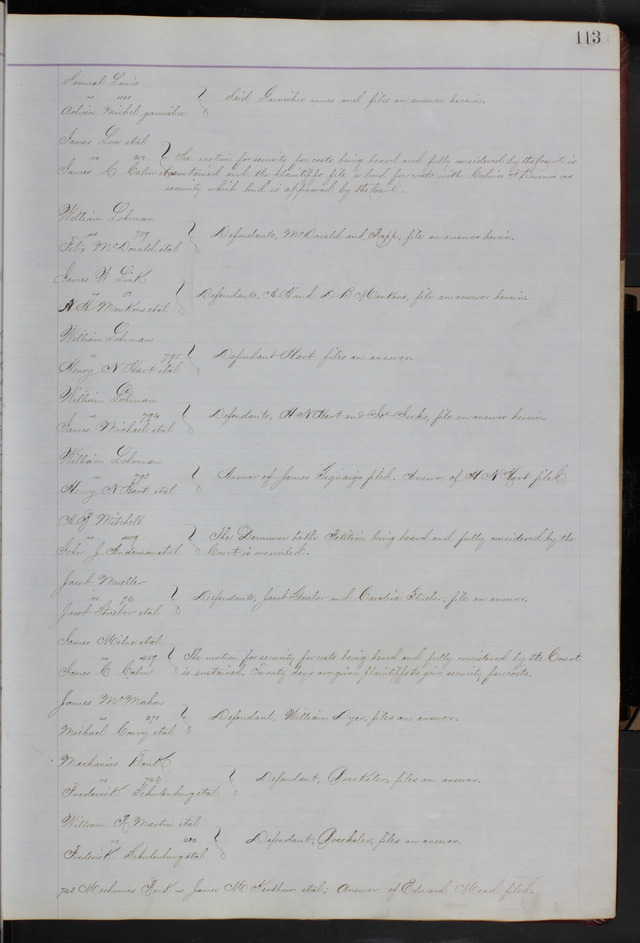 113
Samuel Lewis
vs
Adrian Michel garnishee } Said Garnishee comes and files an answer herein.
James Low etal
vs
James C Cabin etal } The motion for security for costs being heard and fully considered by the Court is
sustained and the plaintiffs file a bond for costs with Calvin F Burnes as
security which bond is approved by the Court.
William Lohman
vs 789
Felix McDonald etal } Defendants, McDonald and Rapp, file an answer herein.
James W Link
vs
A H Menkens etal } Defendants, A H and D B Menkens, file an answer herein
William Lohman
vs 795
Henry N Hart etal } Defendant Hart files an answer.
William Lohman
vs 794
James Michael etal } Defendants, H N Hart and file an answer herein.
William Lohman
vs 790
Henry N Hart etal } Answer of James filed. Answer of H N Hart filed
A J Mitchell
vs 409
John J Anderson etal } The Demurrer to the Petition being heard and fully considered by the
Court is overruled.
Jacob Mueller
vs 96
Jacob Stueber etal } Defendants, Jacob Stueber and Caroline Stueber, file an answer.
James Milne etal
vs 409
James C Cabin } The motion for security for costs being heard and fully considered by the Court
is sustained. Twenty days are given plaintiffs to give security for costs.
James McMahon
vs 271
Michael Conroy etal } Defendant, William Dyer, files an answer.
Mechanics Bank
vs 746
Frederick Schulenburg etal } Defendant, Boeckeler, files an answer.
William A Martin etal
vs
Frederick Schulenburg etal } Defendant, Boeckeler, files an answer.
743 Mechanics Bank vs James M Kershaw etal; Answer of Edward Mead filed.